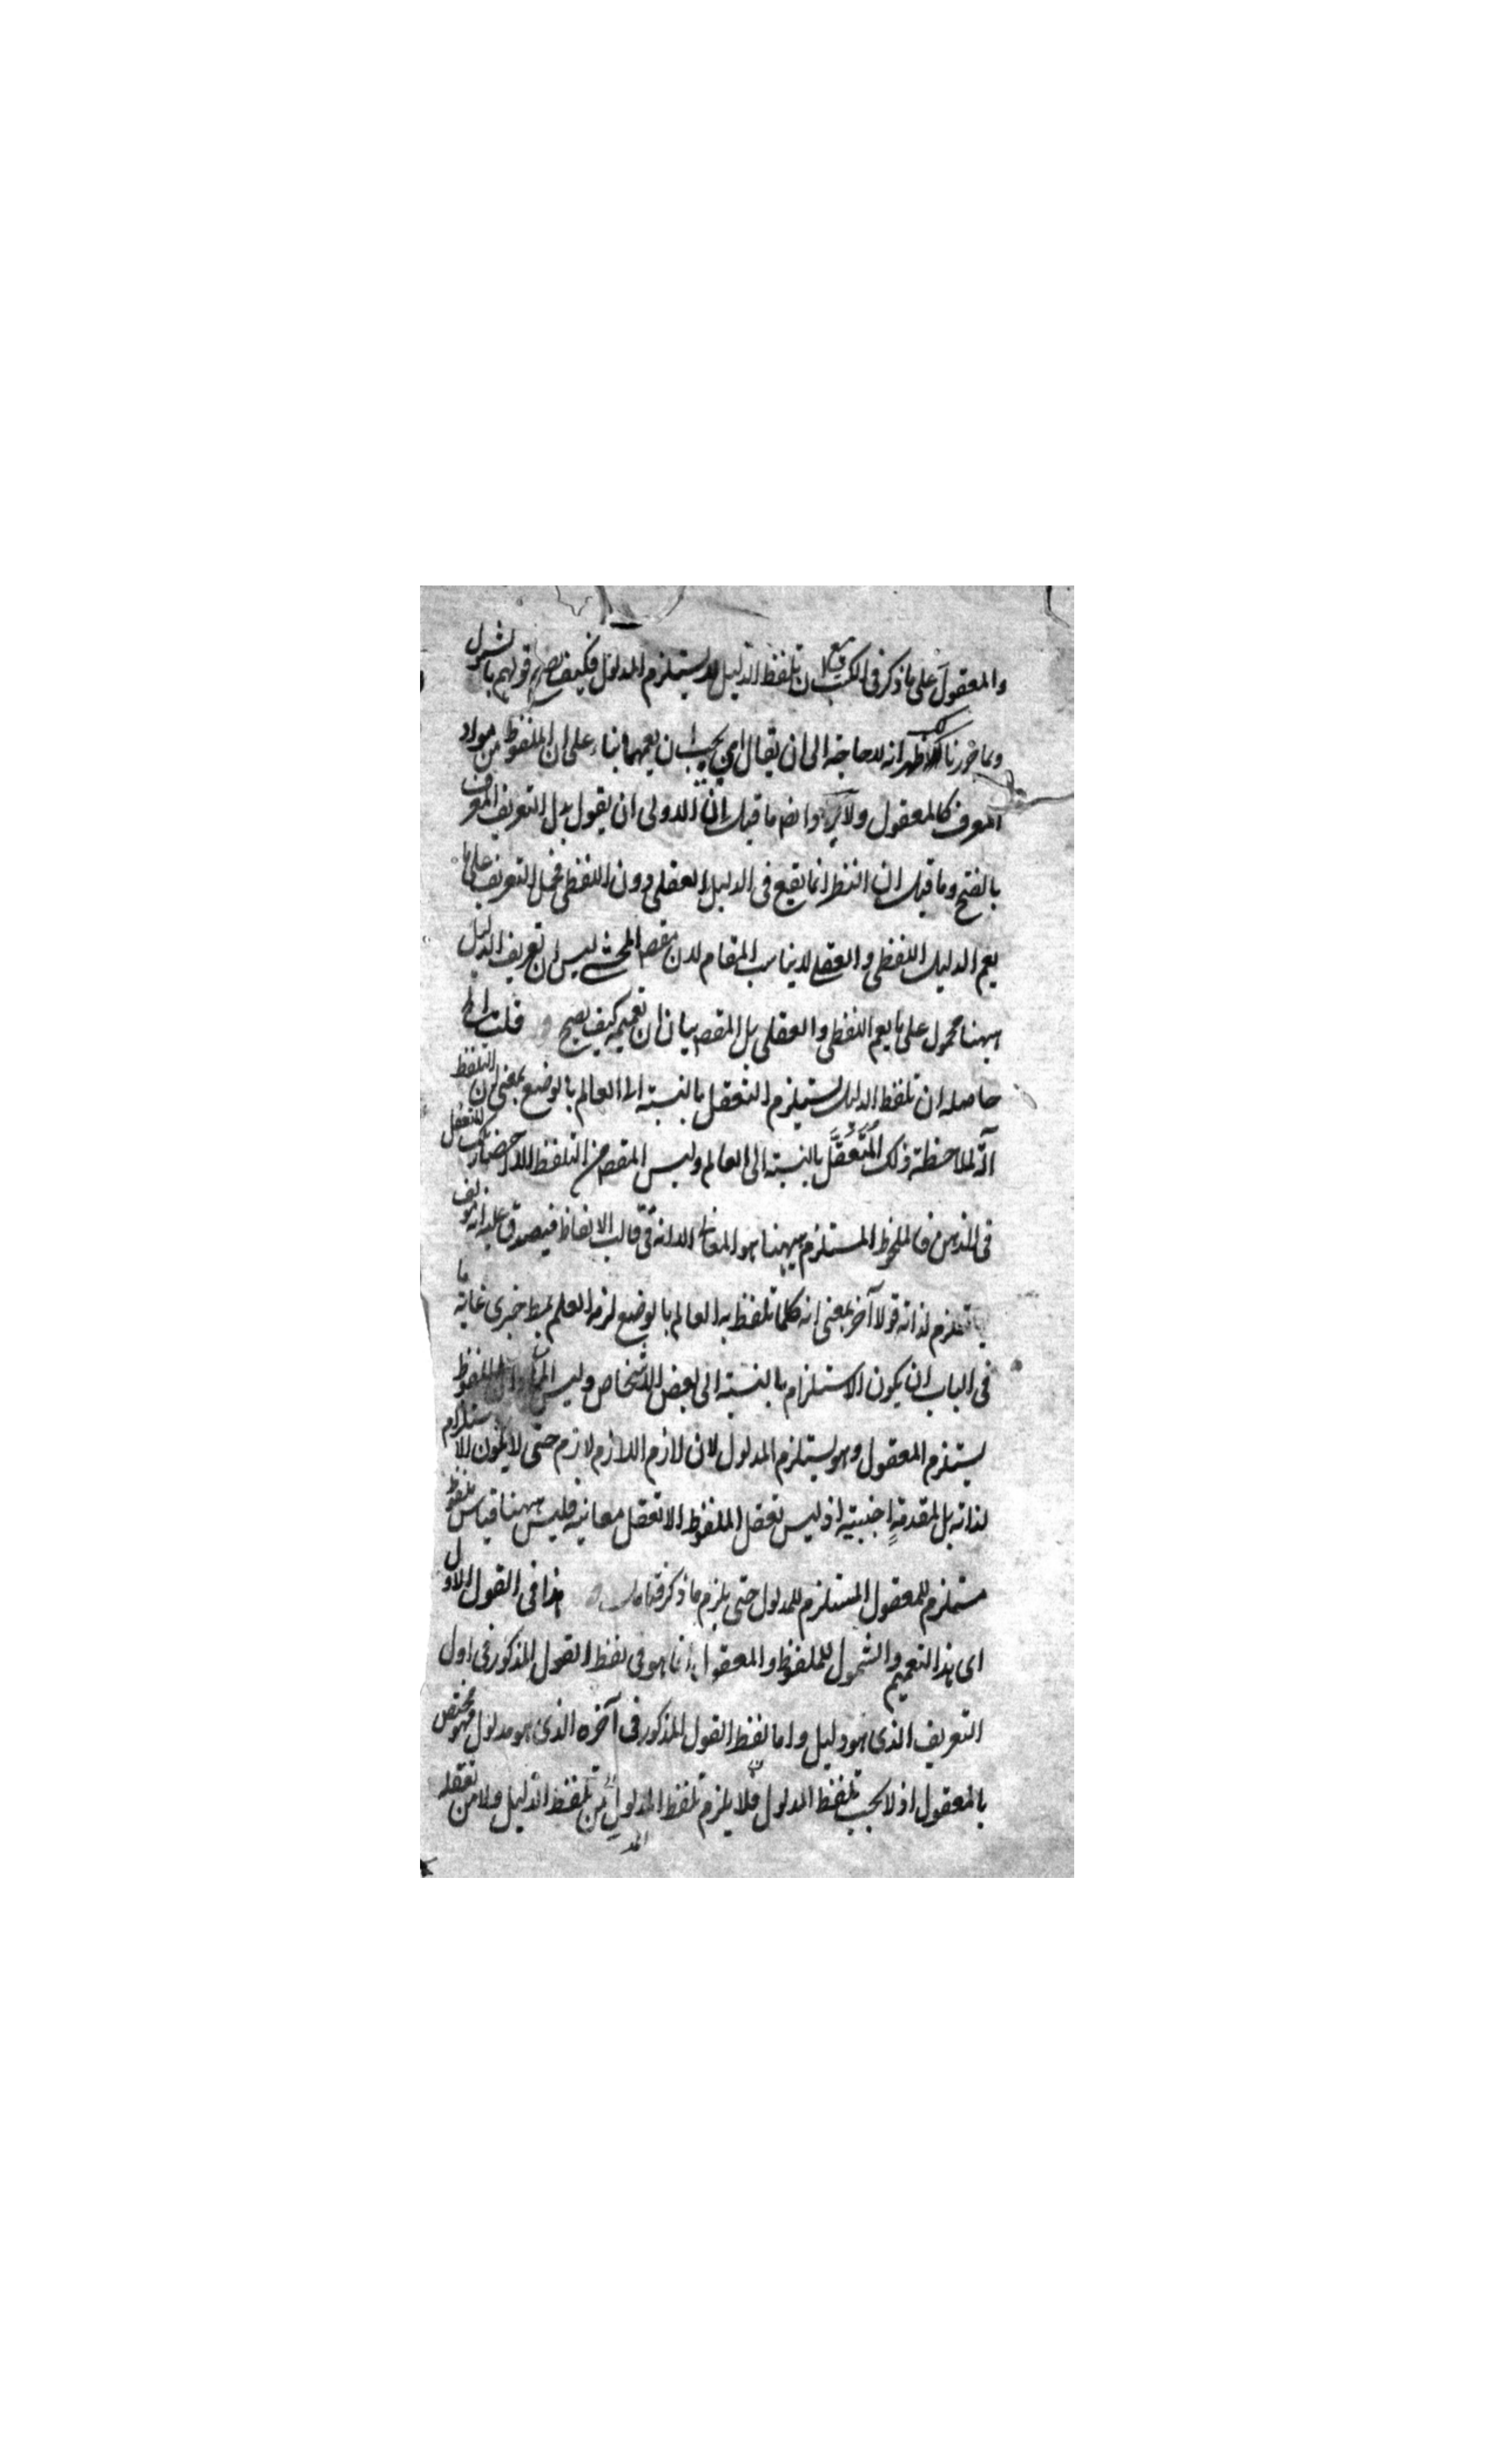 والمعقول على ما ذكر في الكتب مع ان تلفظ الدليل لا يستلزم المدلول فكيف يصح قولهم بالشمول
وبما حررنا لك ظهر انه لا حاجة الى ان يقال اي يجب ان يعمهما بناء على ان الملفوظ من مواد
المعرف كالمعقول ولا يرد ايضا ما قيل ان الاولى ان يقول بدل التعريف المعرف
بالفتح وما قيل ان النظر انما يقع في الدليل العقلي دون اللفظي فحمل التعريف على ما
يعم الدليل اللفظي والعقلي لا يناسب المقام لان مقصد المحشي ليس ان تعريف الدليل
ههنا محمول على ما يعم اللفظي والعقلي بل المقصد بيان ان تعميمه كيف يصح قلت الخ
حاصله ان تلفظ الدليل يستلزم التعقل بالنسبة الى العالم بالوضع بمعنى ان التلفظ
آلة لملاحظة ذلك المتعقل بالنسبة الى العالم وليس المقصد من التلفظ الا احضار ذلك المتعقل
في الذهن فالملفوظ المستلزم ههنا هو المعاني الدانة في قالب الالفاظ فيصدق عليه انه مؤلف
يستلزم لذاته قولا آخر بمعنى انه كلما تلفظ به العالم بالوضع لزمه العلم بمط خبري غاية ما
في الباب ان يكون الاستلزام بالنسبة الى بعض الاشخاص وليس المعنى ان الملفوظ
يستلزم المعقول وهو يستلزم المدلول لان لازم اللازم لازم حتى لا يكون الاستلزام
لذاته بل لمقدمة اجنبية اذ ليس تعقل الملفوظ الا تعقل معانيه فليس ههنا قياس ملفوظ
مستلزم للمعقول المستلزم للمدلول حتى يلزم ما ذكر فتامل هذا في القول الاول
اى هذا التعميم والشمول للملفوظ والمعقول انما هو في لفظ القول المذكور في اول
التعريف الذى هو دليل واما لفظ القول المذكور في آخره الذى هو مدلول فهو مختص
بالمعقول اذ لا يجب تلفظ المدلول فلا يلزم تلفظ المدلول من تلفظ الدليل ولا من تعقله